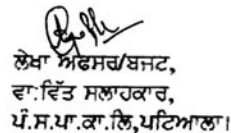 ਲੇਖਾ ਅਫਸਰ/ਬਜਟ,
ਵਾ:ਵਿੱਤ ਸਲਾਹਕਾਰ,
ਪੰ.ਸ.ਪਾ.ਕਾ.ਲਿ,ਪਟਿਆਲਾ।